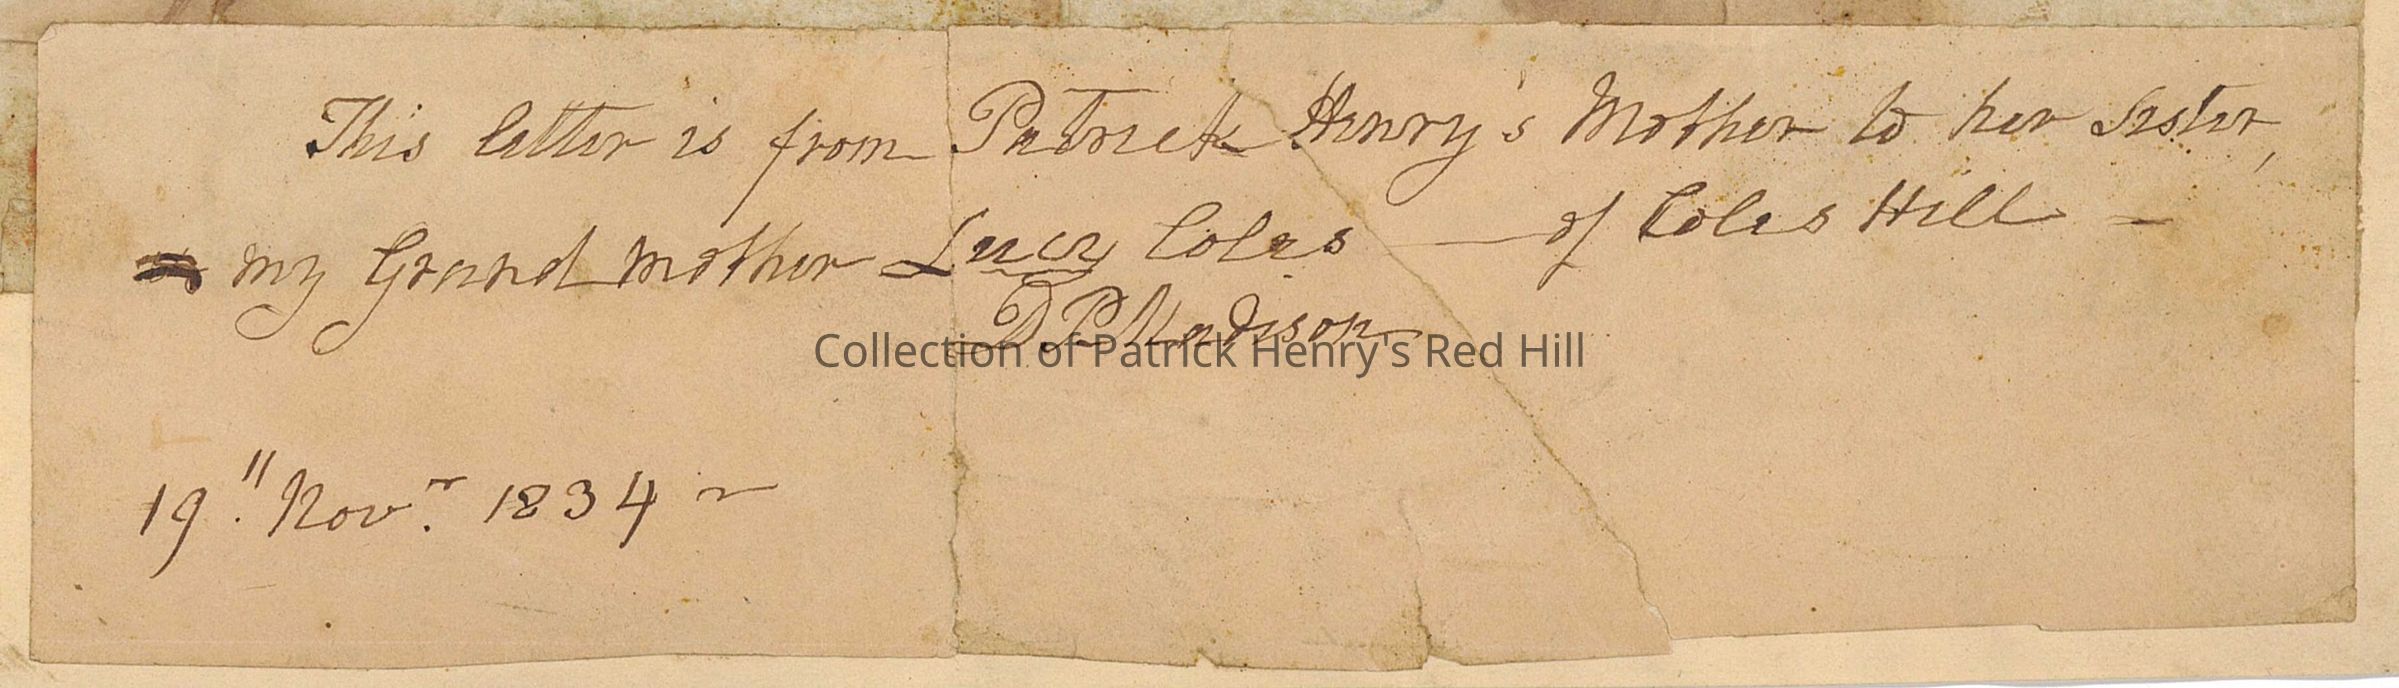 This letter is from Patrick Henry's Mother to her sister,
my Grand Mother Lucy Coles — of Coles Hill —
D. P. Madison
Collection of Patrick Henry's Red Hill
19." Nov.r 1834 ~